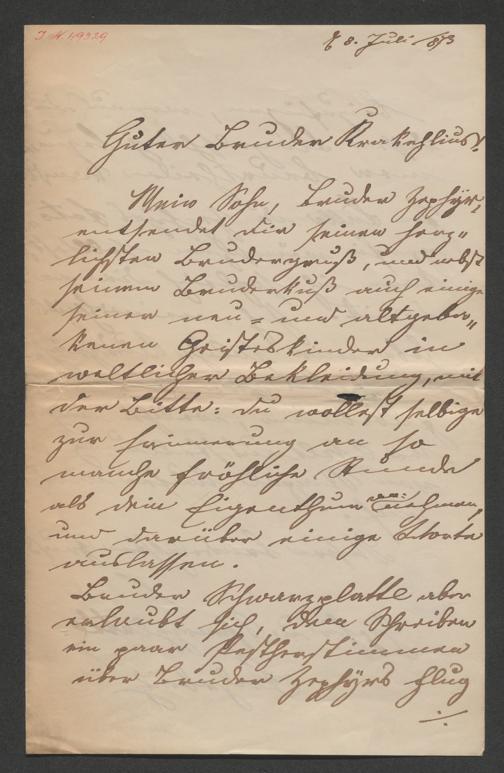 J. N. 49329
8. Juli 873
Guter Bruder Krakehlius!
Mein Sohn, Bruder Zephÿr,
entsendet dir seinen herz„
lichsten Brudergruß, und nebst
seinem Bruderkuß auch einige
seiner neu = und altgeba„
kenen Geisteskinder in
weltlicher Bekleidung, mit
der Bitte: du wollest selbige
zur Erinnerung an so
manche fröhliche Stunde
als dein Eigenthum nehmen,
und darüber einige Worte
auslassen.
Bruder Schwarzplattl aber
erlaubt sich, dem Schreiben
ein paar Pestherstimmen
über Bruder Zephÿrs Flug
./.